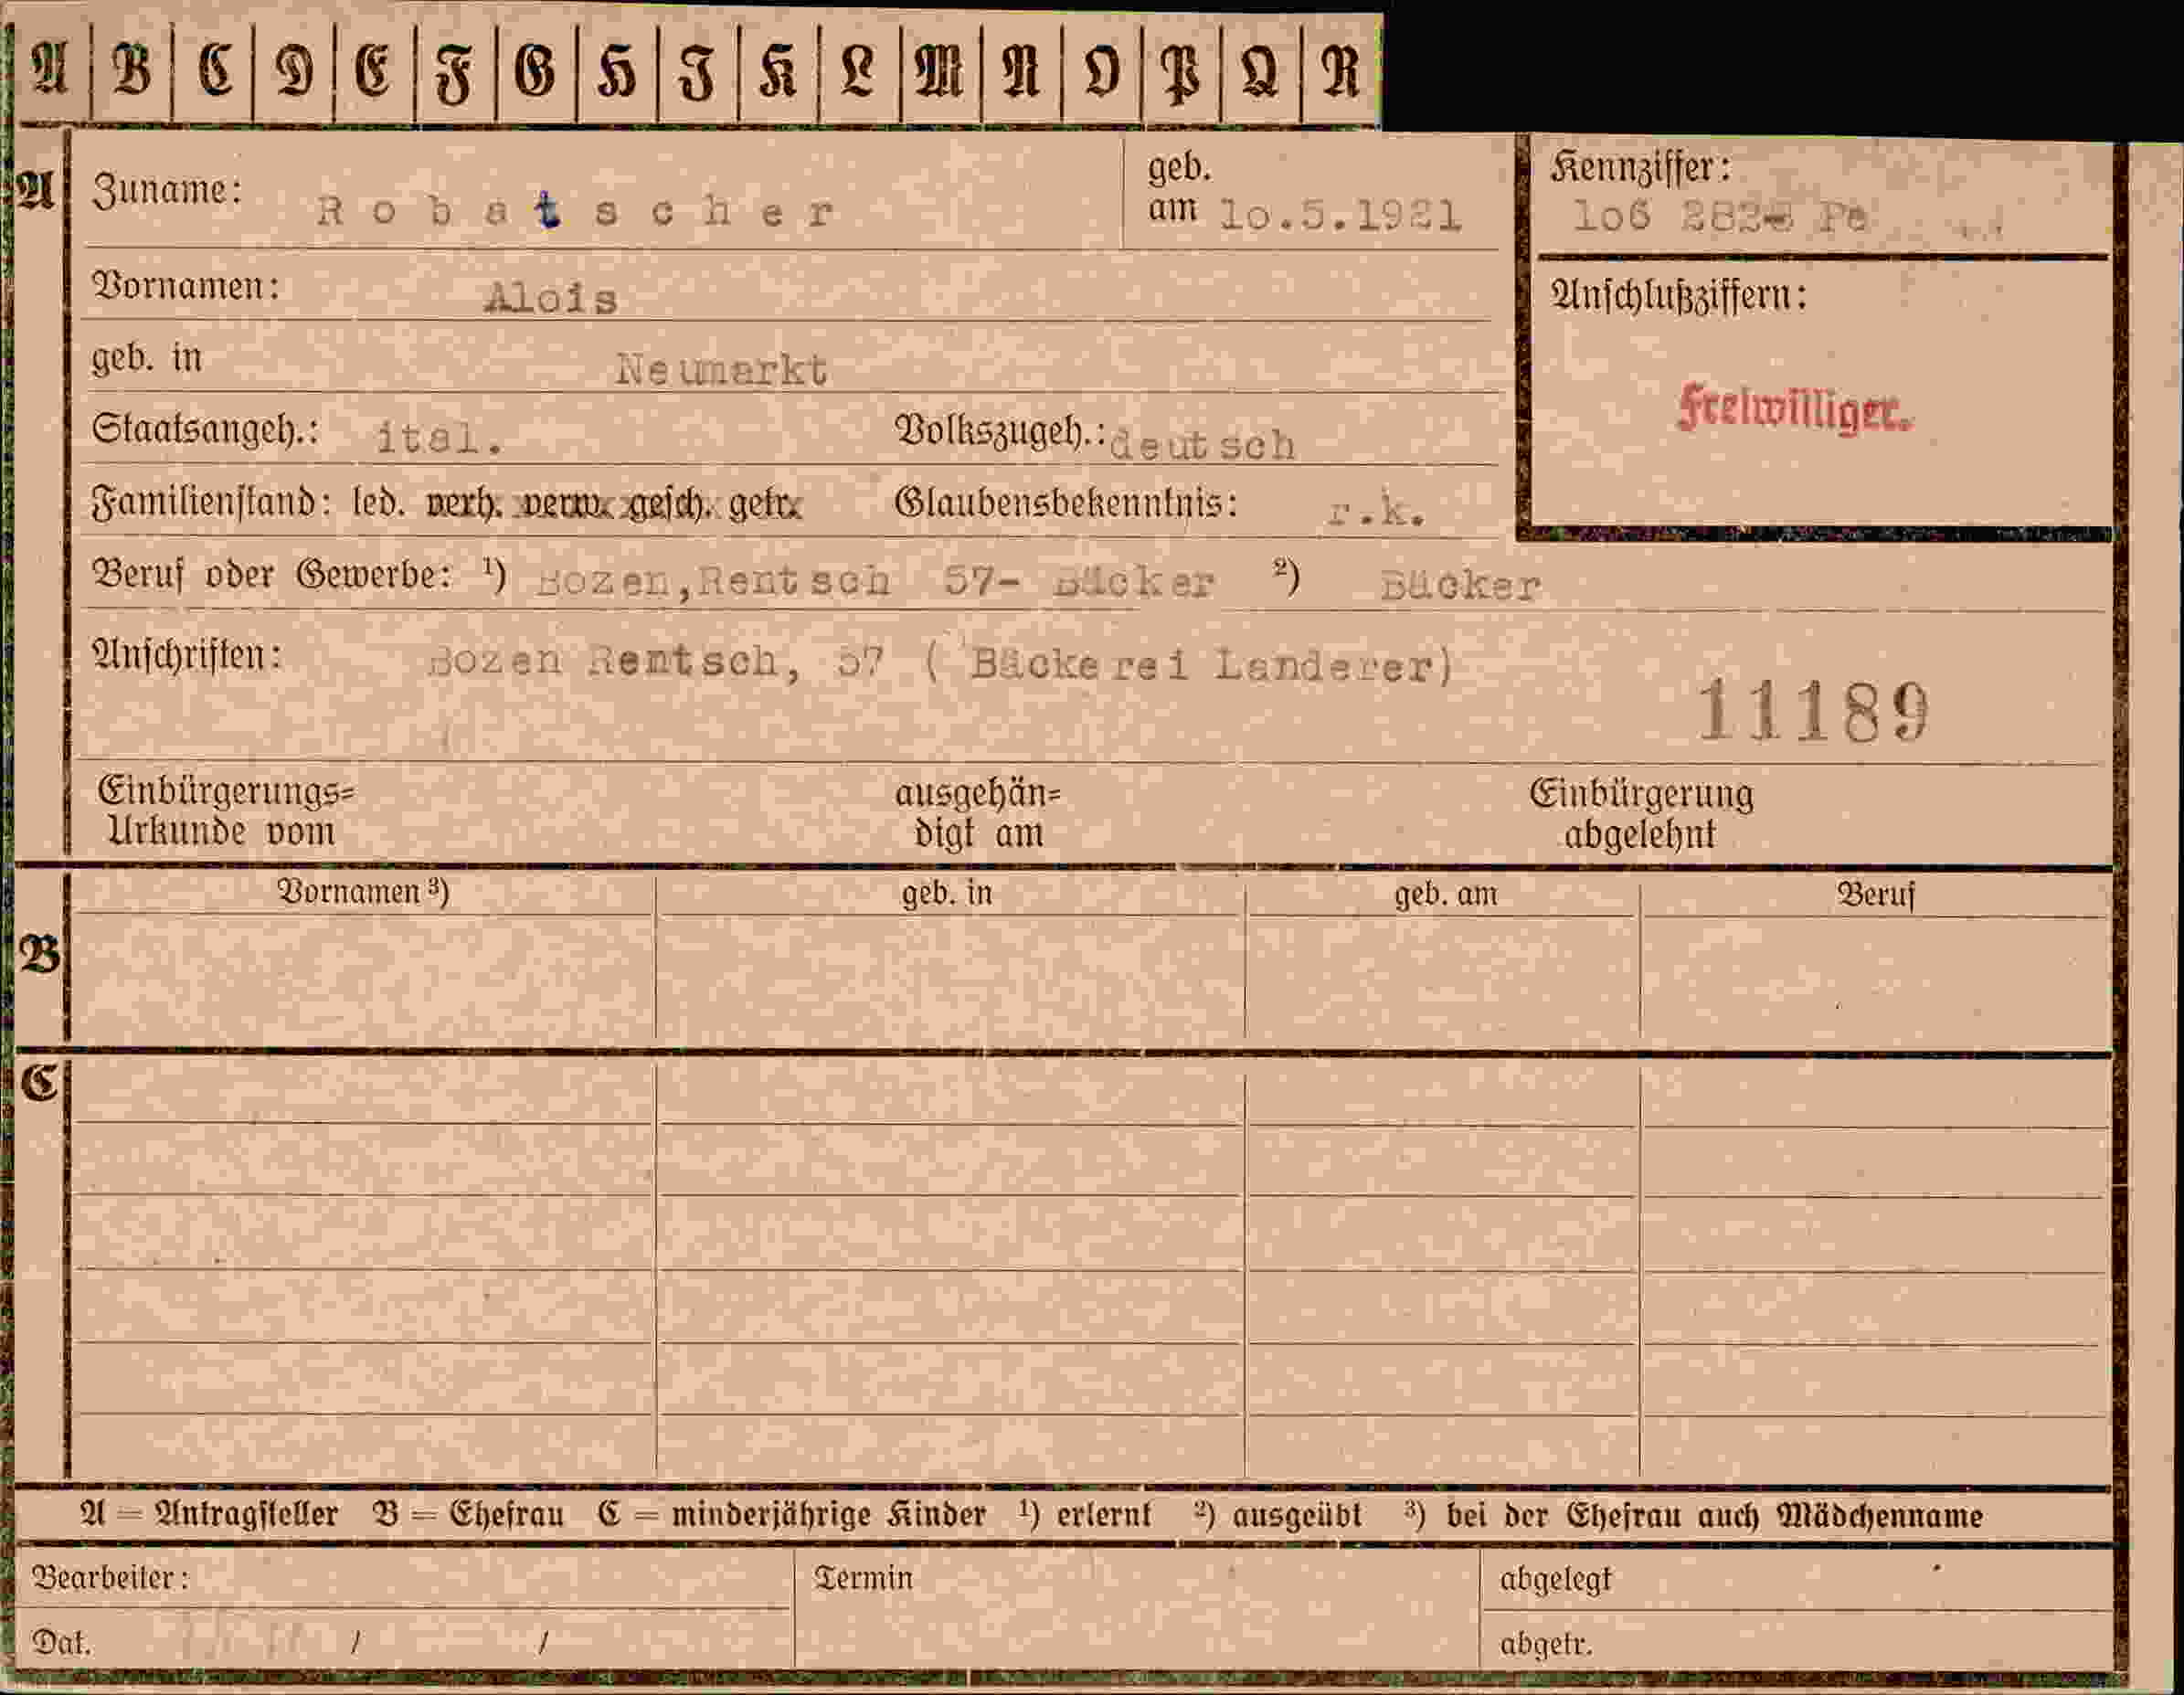 A B C D E F G H J K L M N O P Q R
A Zuname: Robatscher geb. am 10.5.1921
Kennziffer: 106 282 Pe
Vornamen: Alois
Anschlußziffern:
geb. in Neumarkt
Freiwilliger.
Staatsangeh.: ital. Volkszugeh.: deutsch
Familienstand: led. verh. verw. gesch. getr. Glaubensbekenntnis: r.k.
Beruf oder Gewerbe: ¹) Bozen,Rentsch 57- Bäcker ²) Bäcker
Anschriften: Bozen Rentsch, 57 ( Bäckerei Landerer)
11189
Einbürgerungs= ausgehän= Einbürgerung
Urkunde vom digt am abgelehnt
Vornamen ³) geb. in geb. am Beruf
B
C
A = Antragsteller B = Ehefrau C = minderjährige Kinder ¹) erlernt ²) ausgeübt ³) bei der Ehefrau auch Mädchenname
Bearbeiter: Termin abgelegt
Dat. / / abgetr.